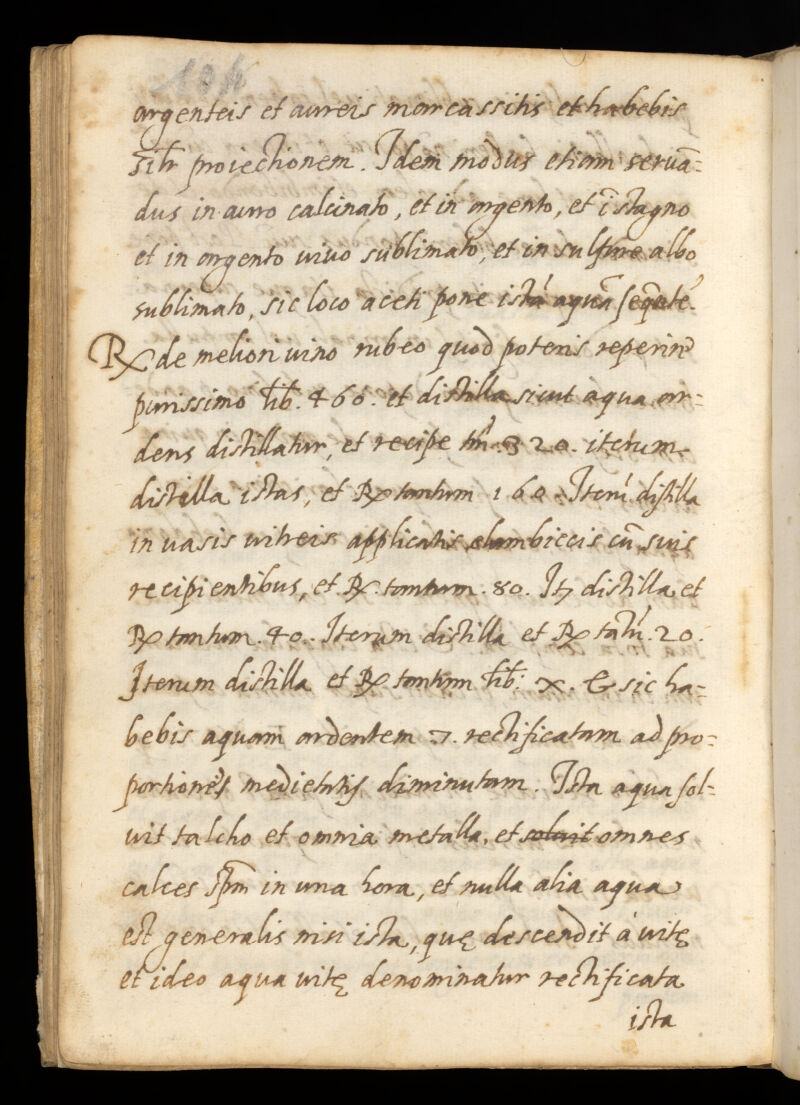 104
argenteis et aureis marcassitis et habebis
sił̃r proiectionem. Idem modus etiam seruã=
dus in auro calcinato, et in argento, et ĩ stagno
et in argento uiuo sublimato, et in sulfure albo
sublimato, sic loco aceti pone istã aquã seq̃ẽtẽ.
℞ de meliori uino rubeo quod poteris reperiri
purissimo lib. 460. et distilla sicut aqua ar=
dens distillatur, et recipe tm̃ 320. iterum
distilla istas, et ℞ tantum 160. Iterũ distilla
in uasis uitreis applicatis alambiccis cũ suis
recipientibus, et ℞. tantum. 80. Itȝ distilla et
℞ tantum. 40. Iterum distilla et ℞ tãtũ. 20.
Iterum distilla et ℞ tantum lib: x. & sic ha=
bebis aquam ardentem 7. rectificatam ad pro=
portiones medietatis diminutam. Ista aqua sol=
uit talcho et omnia metalla, et soluit omnes
calces in una hora, et nulla alia aqua
est generalis nisi ista, quę descendit á uitę
et ideo aqua uitę denominatur rectificata
ista